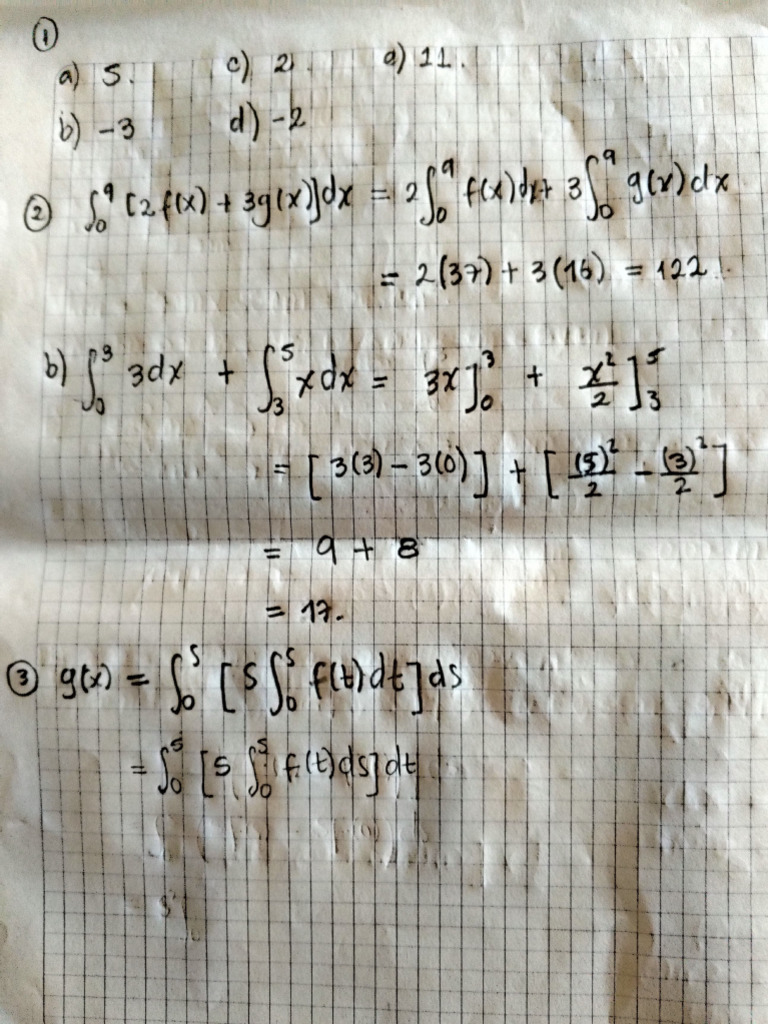 ①
a) 5. c) 2. e) 11.
b) -3 d) -2
② ∫₀⁹ [2f(x) + 3g(x)]dx = 2∫₀⁹ f(x)dx + 3∫₀⁹ g(x)dx
= 2(37) + 3(16) = 122.
b) ∫₀³ 3dx + ∫₃⁵ xdx = 3x]₀³ + x²/2]₃⁵
= [3(3) - 3(0)] + [(5)²/2 - (3)²/2]
= 9 + 8
= 17.
③ g(x) = ∫₀⁵ [5∫₀⁵ f(t)dt]ds
= ∫₀⁵ [5 ∫₀⁵ f(t)ds]dt